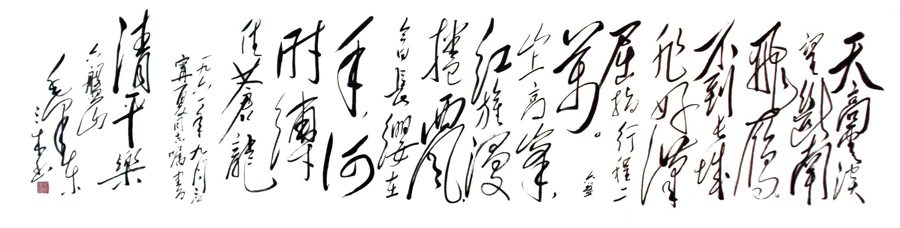 天高雲淡
望斷南
飛雁
不到長城
非好漢
屈指行程二
萬。六盤
山上高峯
红旗漫
捲西風
今日長纓在
手,何
时縛
住蒼龍
一九六一年九月应
寧夏同志嘱書
清平樂
六盤山
毛澤東